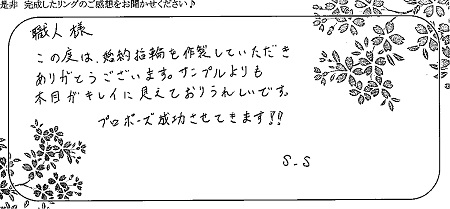 是非 完成したリングのご感想をお聞かせください♪
職人様
この度は、婚約指輪を作製していただき
ありがとうございます。サンプルよりも
木目がキレイに見えておりうれしいです。
プロポーズ成功させてきます!!
S.S